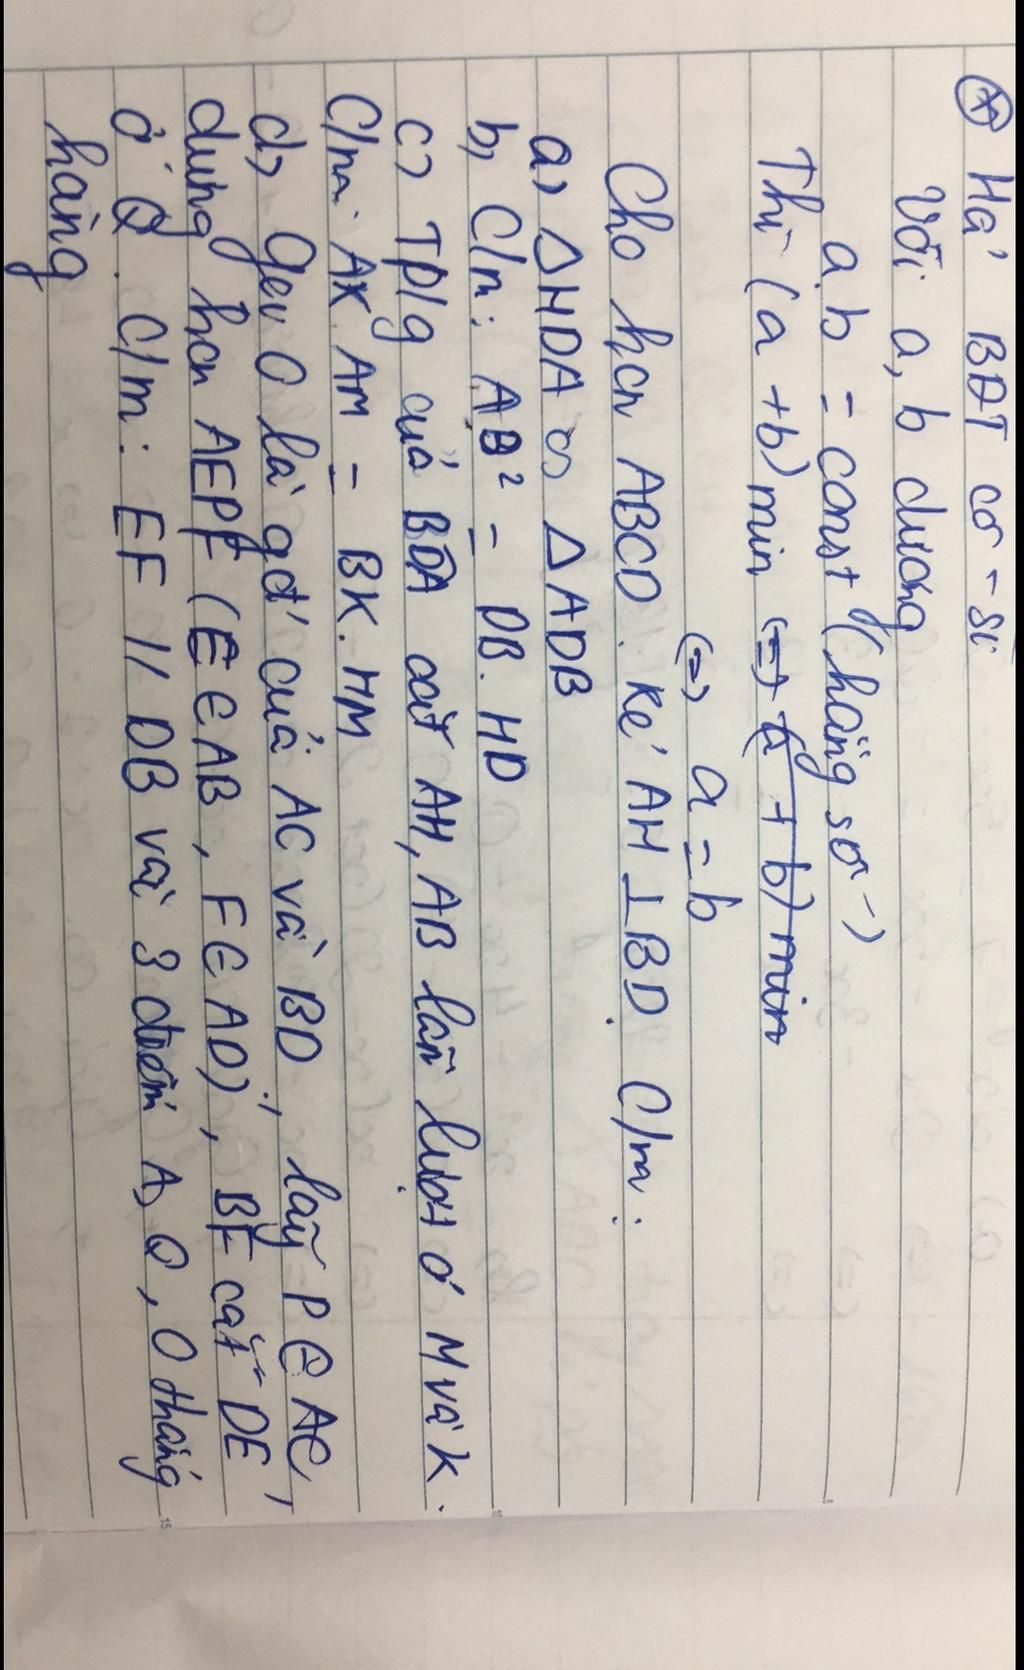 * Hq' BĐT cô-si
Với a, b dương
a.b = const (hằng số)
Thì (a + b) min (=) (a + b) min
(=) a = b
Cho hcn ABCD. Kẻ AH ⊥ BD. C/m:
a) △HDA ∽ △ADB
b) C/m: AD² = DB. HD
c) Tp/g của BDA cắt AH, AB lần lượt ở M và K.
C/m: AK. AM = BK. HM
d) Gọi O là gđ' của AC và BD, lấy P ∈ AC,
dựng hcn AEPF (E ∈ AB, F ∈ AD), BF cắt DE
ở Q. C/m: EF // DB và 3 điểm A, Q, O thẳng
hàng